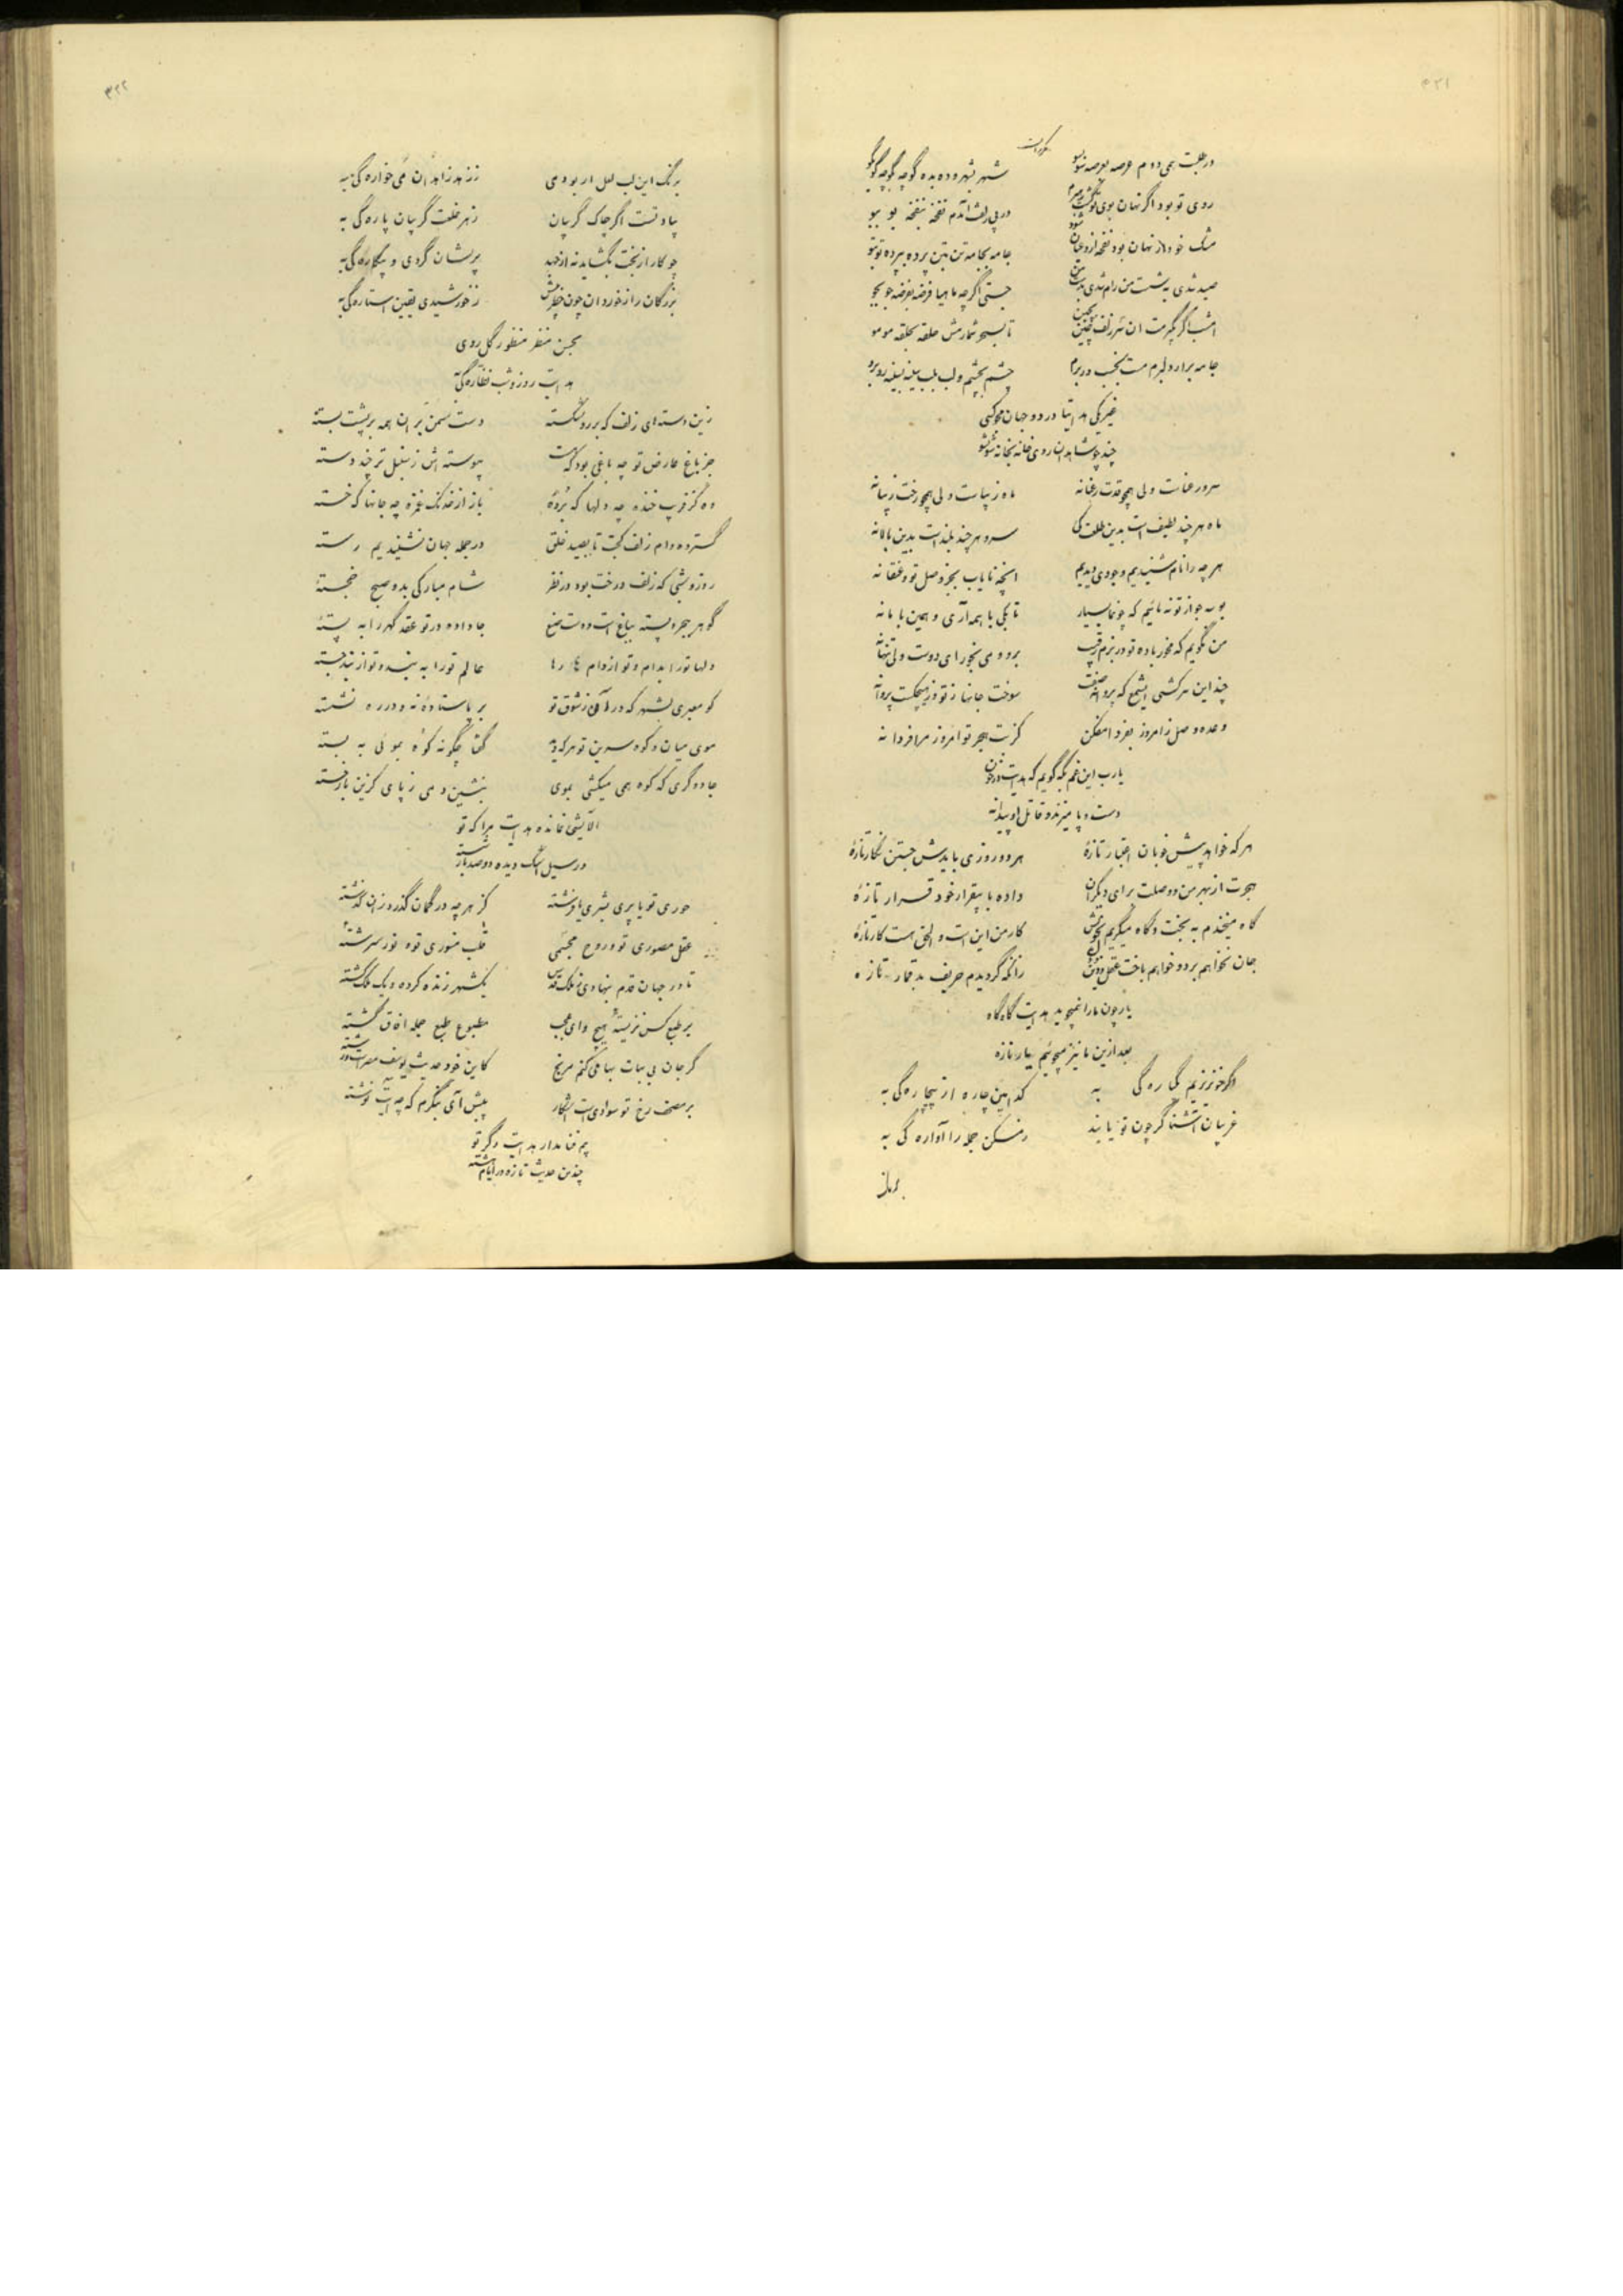 ۴۲۱
در طلبت همی دوم عرصه بعرصه سو بسو
شهر بشهر و ده بده گوچه بگوچه کو بکو
روی تو بود اگر نهان بوی تو
در پی زلفت آمدم نفخه بنفخه بو ببو
مشک خود از نهان بود نفحه از و عیان شود
جامه بجامه تن بتن پرده بپرده تو بتو
صید شدی به شست من رام شدی بدست من
جستی اگر چه ماهیا فرضه بفرضه جو بجو
امشب اگر بگیرمت آن سر زلف
تا بسحر شمارمش حلقه بحلقه مو بمو
جامه برآر و دلبرم مست بخسب در برم
چشم بچشم و لب بلب سینه بسینه رو برو
غیر یکی هدایتا در دو جهان مجو کسی
چند چو شاهدان روی خانه بخانه شو بشو
سرو رعناست ولی همچو قدت رعنا نه
ماه زیباست ولی همچو رخت زیبا نه
ماه هر چند لطیف است بدین طلعت کی
سرو هر چند بلند است بدین بالا نه
هر چه را نام شنیدیم وجودی دیدیم
آنچه نایاب بجز وصل تو و عنقا نه
بوسه جو از تو نه مائیم که چو ما بسیار
تا بکی با همه آری و همین با ما نه
من نگویم که مخور باده تو در بزم رقیب
برو و می بخور ای دوست ولی تنها نه
چند این سرکشی ای شمع که پروانه صفت
سوخت جانها ز تو و ز هیچکست پروا نه
وعده وصل ز امروز بفردا مفکن
کز تب هجر تو امروز مرا فردا نه
یارب این غم بکه گویم که هدایت در خون
دست و پا میزند و قاتل او پیدا نه
هر که خواهد پیش خوبان اعتبار تازهٔ
هر دو روزی بایدش جستن نگار تازهٔ
هجرت از بهر من و وصلت برای دیگران
داده با بیقرار خود قرار تازهٔ
گاه میخندم به بخت و گاه میگریم بخویش
کار من این است و الحق هست کار تازهٔ
جان نخواهم برد و خواهم باخت عقل و دین
زانکه گردیدم حریف بد قمار تازه
یار چون ما را نمیجوید هدایت گاه گاه
بعد ازین ما نیز میجوئیم یار تازه
اگر خونریزیم یکبارگی به
کدامین چاره از بیچارگی به
غریبان آشنا گر چون تو یابند
ز مسکن جمله را آوارگی به
۴۲۲
برنگ این لب لعل ار بود می
ز زهد زاهدان می خوارگی به
بیادت است اگر چاک گریبان
ز هر خلعت گریبان پارگی به
چو کار از بخت بگشاید نه از جهد
پریشان گردی و بیکارگی به
بزرگان را ز خوردان چون خطر بیش
ز خورشیدی یقین استارگی به
بحسن منظر منظور گل روی
هدایت روز و شب نظارگی به
زین دسته‌ای زلف که بر رو شکسته
دست سمن بران همه بر پشت بسته
جز باغ عارض تو چه باغی بود که هست
پیوسته اش ز سنبل تر چند دسته
وه کز فریب خنده چه دلها که بردهٔ
باز از خدنگ غمزه چه جانها که خسته
گسترده دام زلف کجت تا بصید خلق
در جمله جهان نشنیدیم رسته
روز و شبی که زلف و رخت بود در نظر
شام مبارکی بد و صبح خجستهٔ
جا داده در تو عقد گهر را به پستهٔ
دلها تو را بدام و تو از دام ما رها
عالم تو را به بند و تو از بند جسته
کو معبری بشهر که در آن ز شوق تو
بر پا ستادهٔ نه و در ره نشسته
موی میان و کوه سرین تو هر که دید
گفتا چگونه کوه بموئی به بسته
جادوگری که کوه همی میکشی بموی
بنشین دمی ز پای کزین بار خسته
آلایشی نمانده هدایت مرا که تو
در سیل اشک دیده دو صد بار شسته
حوری تو یا پری بشری یا فرشته
کز هر چه در گمان گذرد زان گذشته
عقل مصوری تو و روح مجسمی
قلب منوری تو و نور سرشتهٔ
تا در جهان قدم بنهادی ز ملک قدس
یکشهر زنده کرده و یک ملک کشته
بر طبع کس نزیستهٔ هیچ و ای عجب
مطبوع طبع جمله آفاق گشته
گر جان بی بهات بها می کنم مرنج
بر مصحف رخ تو سوادی است آشکار
پیش آی بنگرم که چه آیت نوشته
بیم فنا مدار هدایت دگر که تو
چندین حدیث تازه در ایام هشته